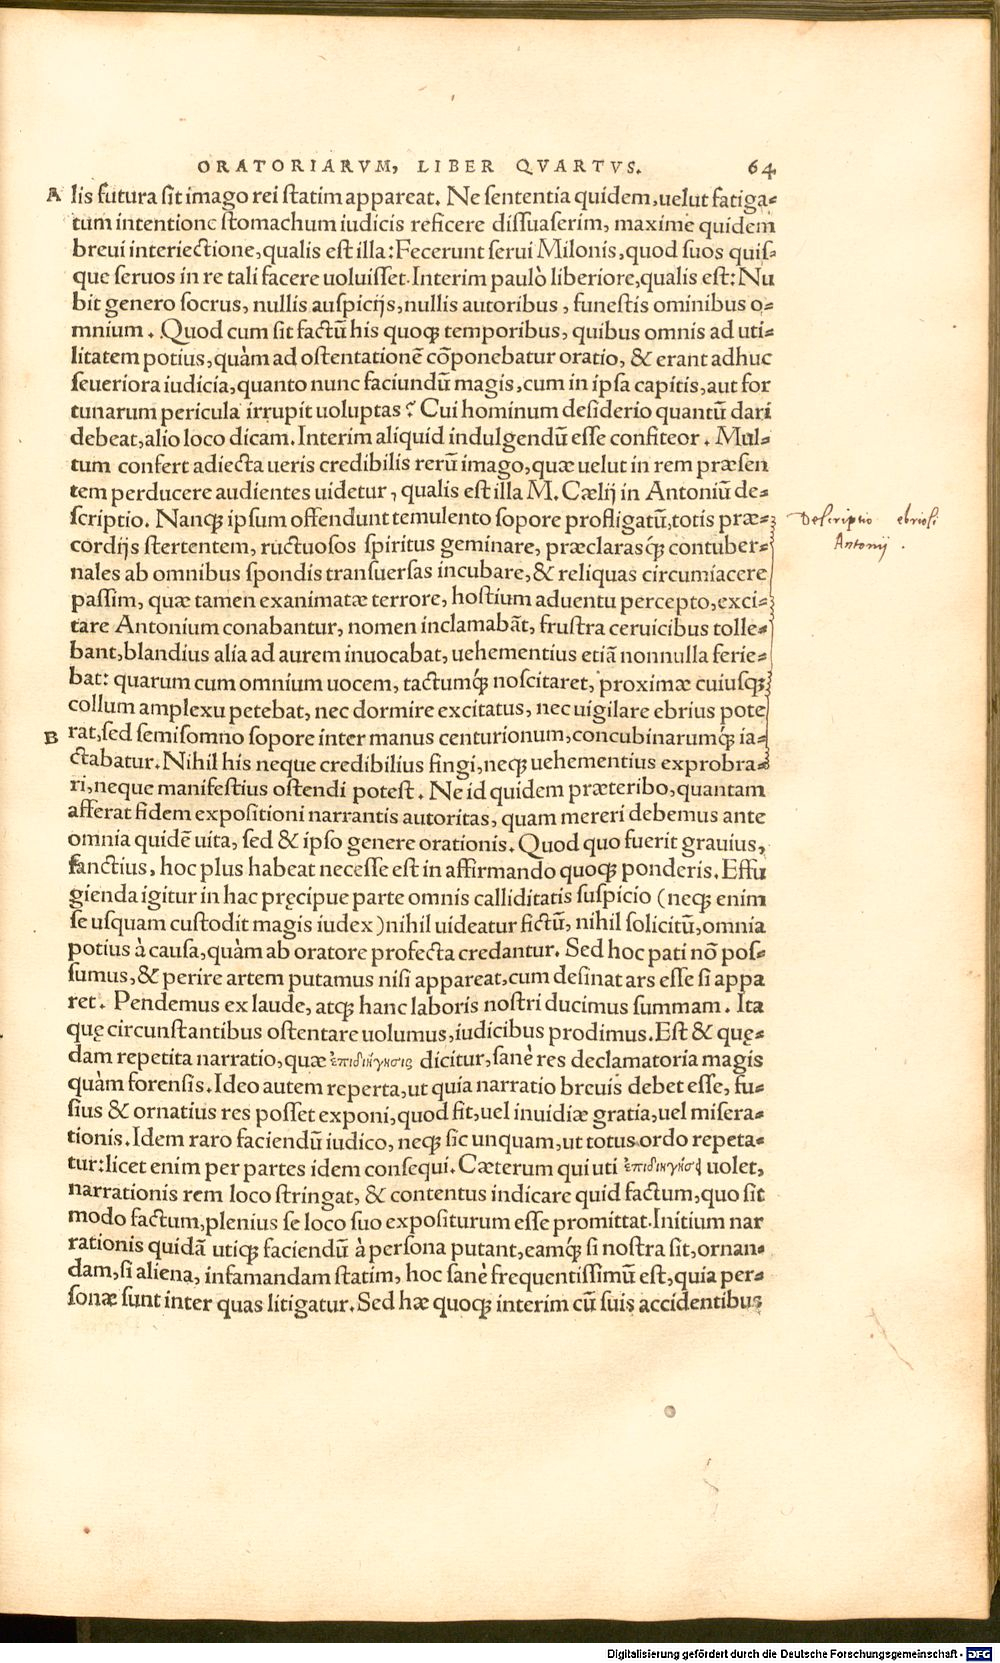 ORATORIARVM, LIBER QVARTVS. 64
A lis futura sit imago rei statim appareat. Ne sententia quidem, uelut fatiga⸗
tum intentione stomachum iudicis reficere dissuaserim, maxime quidem
breui interiectione, qualis est illa: Fecerunt serui Milonis, quod suos quis⸗
que seruos in re tali facere uoluisset. Interim paulò liberiore, qualis est: Nu
bit genero socrus, nullis auspicijs, nullis autoribus, funestis ominibus o⸗
mnium. Quod cum sit factũ his quoqꝫ temporibus, quibus omnis ad uti⸗
litatem potius, quàm ad ostentationẽ cõponebatur oratio, & erant adhuc
seueriora iudicia, quanto nunc faciundũ magis, cum in ipsa capitis, aut for
tunarum pericula irrupit uoluptas? Cui hominum desiderio quantũ dari
debeat, alio loco dicam. Interim aliquid indulgendũ esse confiteor. Mul⸗
tum confert adiecta ueris credibilis rerũ imago, quæ uelut in rem præsen
tem perducere audientes uidetur, qualis est illa M. Cælij in Antoniũ de⸗
scriptio. Nanqꝫ ipsum offendunt temulento sopore profligatũ, totis præ⸗
cordijs stertentem, ructuosos spiritus geminare, præclarasq́ꝫ contuber⸗
nales ab omnibus spondis transuersas incubare, & reliquas circumiacere
passim, quæ tamen exanimatæ terrore, hostium aduentu percepto, exci⸗
tare Antonium conabantur, nomen inclamabãt, frustra ceruicibus tolle⸗
bant, blandius alia ad aurem inuocabat, uehementius etiã nonnulla ferie⸗
bat: quarum cum omnium uocem, tactumq́ꝫ noscitaret, proximæ cuiusqꝫ
collum amplexu petebat, nec dormire excitatus, nec uigilare ebrius pote
B rat, sed semisomno sopore inter manus centurionum, concubinarumq́ꝫ ia⸗
ctabatur. Nihil his neque credibilius fingi, neqꝫ uehementius exprobra⸗
ri, neque manifestius ostendi potest. Ne id quidem præteribo, quantam
afferat fidem expositioni narrantis autoritas, quam mereri debemus ante
omnia quidẽ uita, sed & ipso genere orationis. Quod quo fuerit grauius,
sanctius, hoc plus habeat necesse est in affirmando quoqꝫ ponderis. Effu
gienda igitur in hac pręcipue parte omnis calliditatis suspicio (neqꝫ enim
se usquam custodit magis iudex) nihil uideatur fictũ, nihil solicitũ, omnia
potius à causa, quàm ab oratore profecta credantur. Sed hoc pati nõ pos⸗
sumus, & perire artem putamus nisi appareat, cum desinat ars esse si appa
ret. Pendemus ex laude, atqꝫ hanc laboris nostri ducimus summam. Ita
quę circunstantibus ostentare uolumus, iudicibus prodimus. Est & quę⸗
dam repetita narratio, quæ ἐπιδιήγησις dicitur, sanè res declamatoria magis
quàm forensis. Ideo autem reperta, ut quia narratio breuis debet esse, fu⸗
sius & ornatius res posset exponi, quod fit, uel inuidiæ gratia, uel misera⸗
tionis. Idem raro faciendũ iudico, neqꝫ sic unquam, ut totus ordo repeta⸗
tur: licet enim per partes idem consequi. Cæterum qui uti ἐπιδιηγήσει uolet,
narrationis rem loco stringat, & contentus indicare quid factum, quo sit
modo factum, plenius se loco suo expositurum esse promittat. Initium nar
rationis quidã utiqꝫ faciendũ à persona putant, eamq́ꝫ si nostra sit, ornan⸗
dam, si aliena, infamandam statim, hoc sanè frequentissimũ est, quia per⸗
sonæ sunt inter quas litigatur. Sed hæ quoqꝫ interim cũ suis accidentibus
Descriptio ebriosi
Antonij.
Digitalisierung gefördert durch die Deutsche Forschungsgemeinschaft - DFG